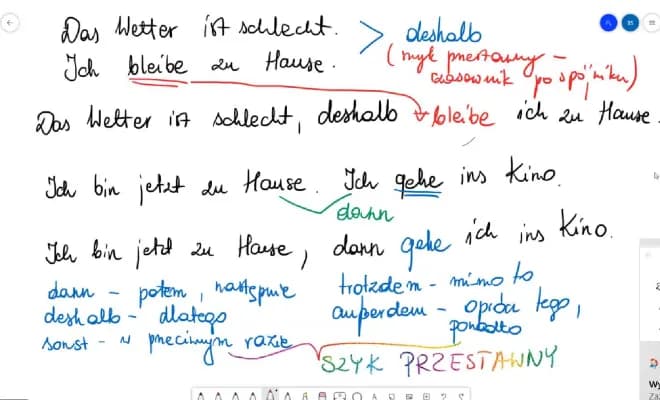 Das Wetter ist schlecht. > deshalb
Ich bleibe zu Hause. (szyk przestawny – czasownik po spójniku)
Das Wetter ist schlecht, deshalb bleibe ich zu Hause.
Ich bin jetzt zu Hause. Ich gehe ins Kino.
dann
Ich bin jetzt zu Hause, dann gehe ich ins Kino.
dann – potem, następnie
deshalb – dlatego
sonst – w przeciwnym razie
trotzdem – mimo to
außerdem – oprócz tego,
ponadto
SZYK PRZESTAWNY